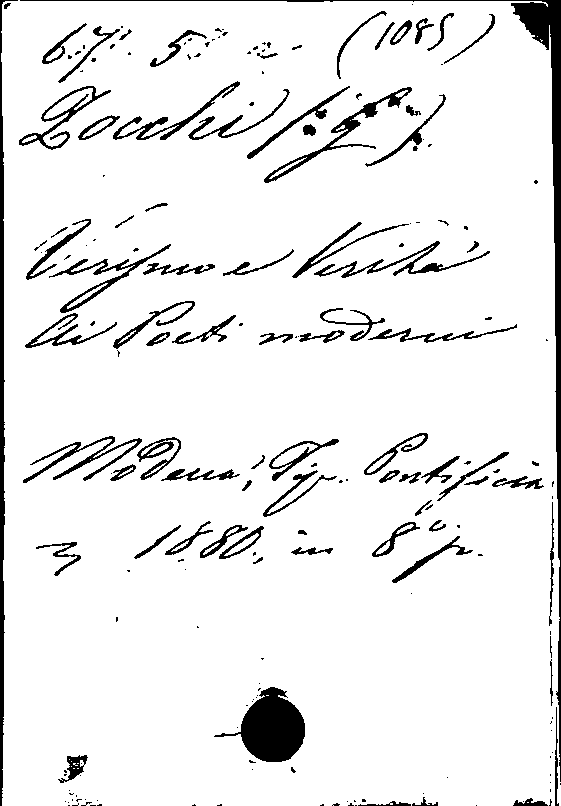 67. 5. 2. (1085)
Zocchi (G.)
Verismo e Verità
Ai Poeti moderni
Modena, Tip. Pontificia
1880, in 8° p.